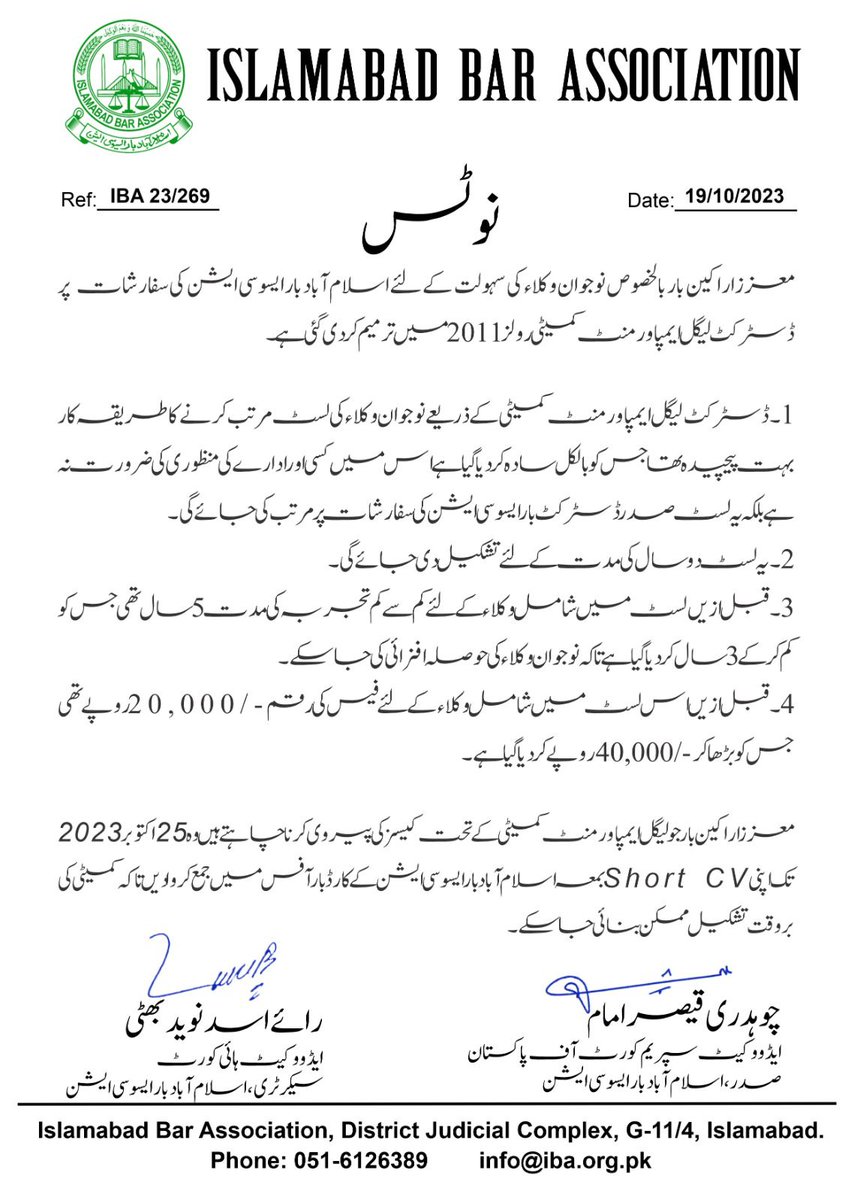 حسبنا اللہ و نعم الوکیل
ISLAMABAD BAR ASSOCIATION
اسلام آباد بار ایسوسی ایشن
ISLAMABAD BAR ASSOCIATION
Ref: IBA 23/269
Date: 19/10/2023
نوٹس
معزز اراکین بار بالخصوص نوجوان وکلاء کی سہولت کے لئے اسلام آباد بار ایسوسی ایشن کی سفارشات پر
ڈسٹرکٹ لیگل ایمپاورمنٹ کمیٹی رولز 2011 میں ترمیم کر دی گئی ہے۔
1۔ ڈسٹرکٹ لیگل ایمپاورمنٹ کمیٹی کے ذریعے نوجوان وکلاء کی لسٹ مرتب کرنے کا طریقہ کار
بہت پیچیدہ تھا جس کو بالکل سادہ کر دیا گیا ہے اس میں کسی اور ادارے کی منظوری کی ضرورت نہ
ہے بلکہ یہ لسٹ صدر ڈسٹرکٹ بار ایسوسی ایشن کی سفارشات پر مرتب کی جائے گی۔
2۔ یہ لسٹ دو سال کی مدت کے لئے تشکیل دی جائے گی۔
3۔ قبل ازیں لسٹ میں شامل وکلاء کے لئے کم سے کم تجربہ کی مدت 5 سال تھی جس کو
کم کر کے 3 سال کر دیا گیا ہے تاکہ نوجوان وکلاء کی حوصلہ افزائی کی جا سکے۔
4۔ قبل ازیں اس لسٹ میں شامل وکلاء کے لئے فیس کی رقم -/20,000 روپے تھی
جس کو بڑھا کر -/40,000 روپے کر دیا گیا ہے۔
معزز اراکین بار جو لیگل ایمپاورمنٹ کمیٹی کے تحت کیسز کی پیروی کرنا چاہتے ہیں وہ 25 اکتوبر 2023
تک اپنی Short CV بمعہ اسلام آباد بار ایسوسی ایشن کے کارڈ بار آفس میں جمع کروا دیں تاکہ کمیٹی کی
بروقت تشکیل ممکن بنائی جا سکے۔
چوہدری قیصر امام
ایڈووکیٹ سپریم کورٹ آف پاکستان
صدر، اسلام آباد بار ایسوسی ایشن
رائے اسد نوید بھٹی
ایڈووکیٹ ہائی کورٹ
سیکرٹری، اسلام آباد بار ایسوسی ایشن
Islamabad Bar Association, District Judicial Complex, G-11/4, Islamabad.
Phone: 051-6126389 info@iba.org.pk